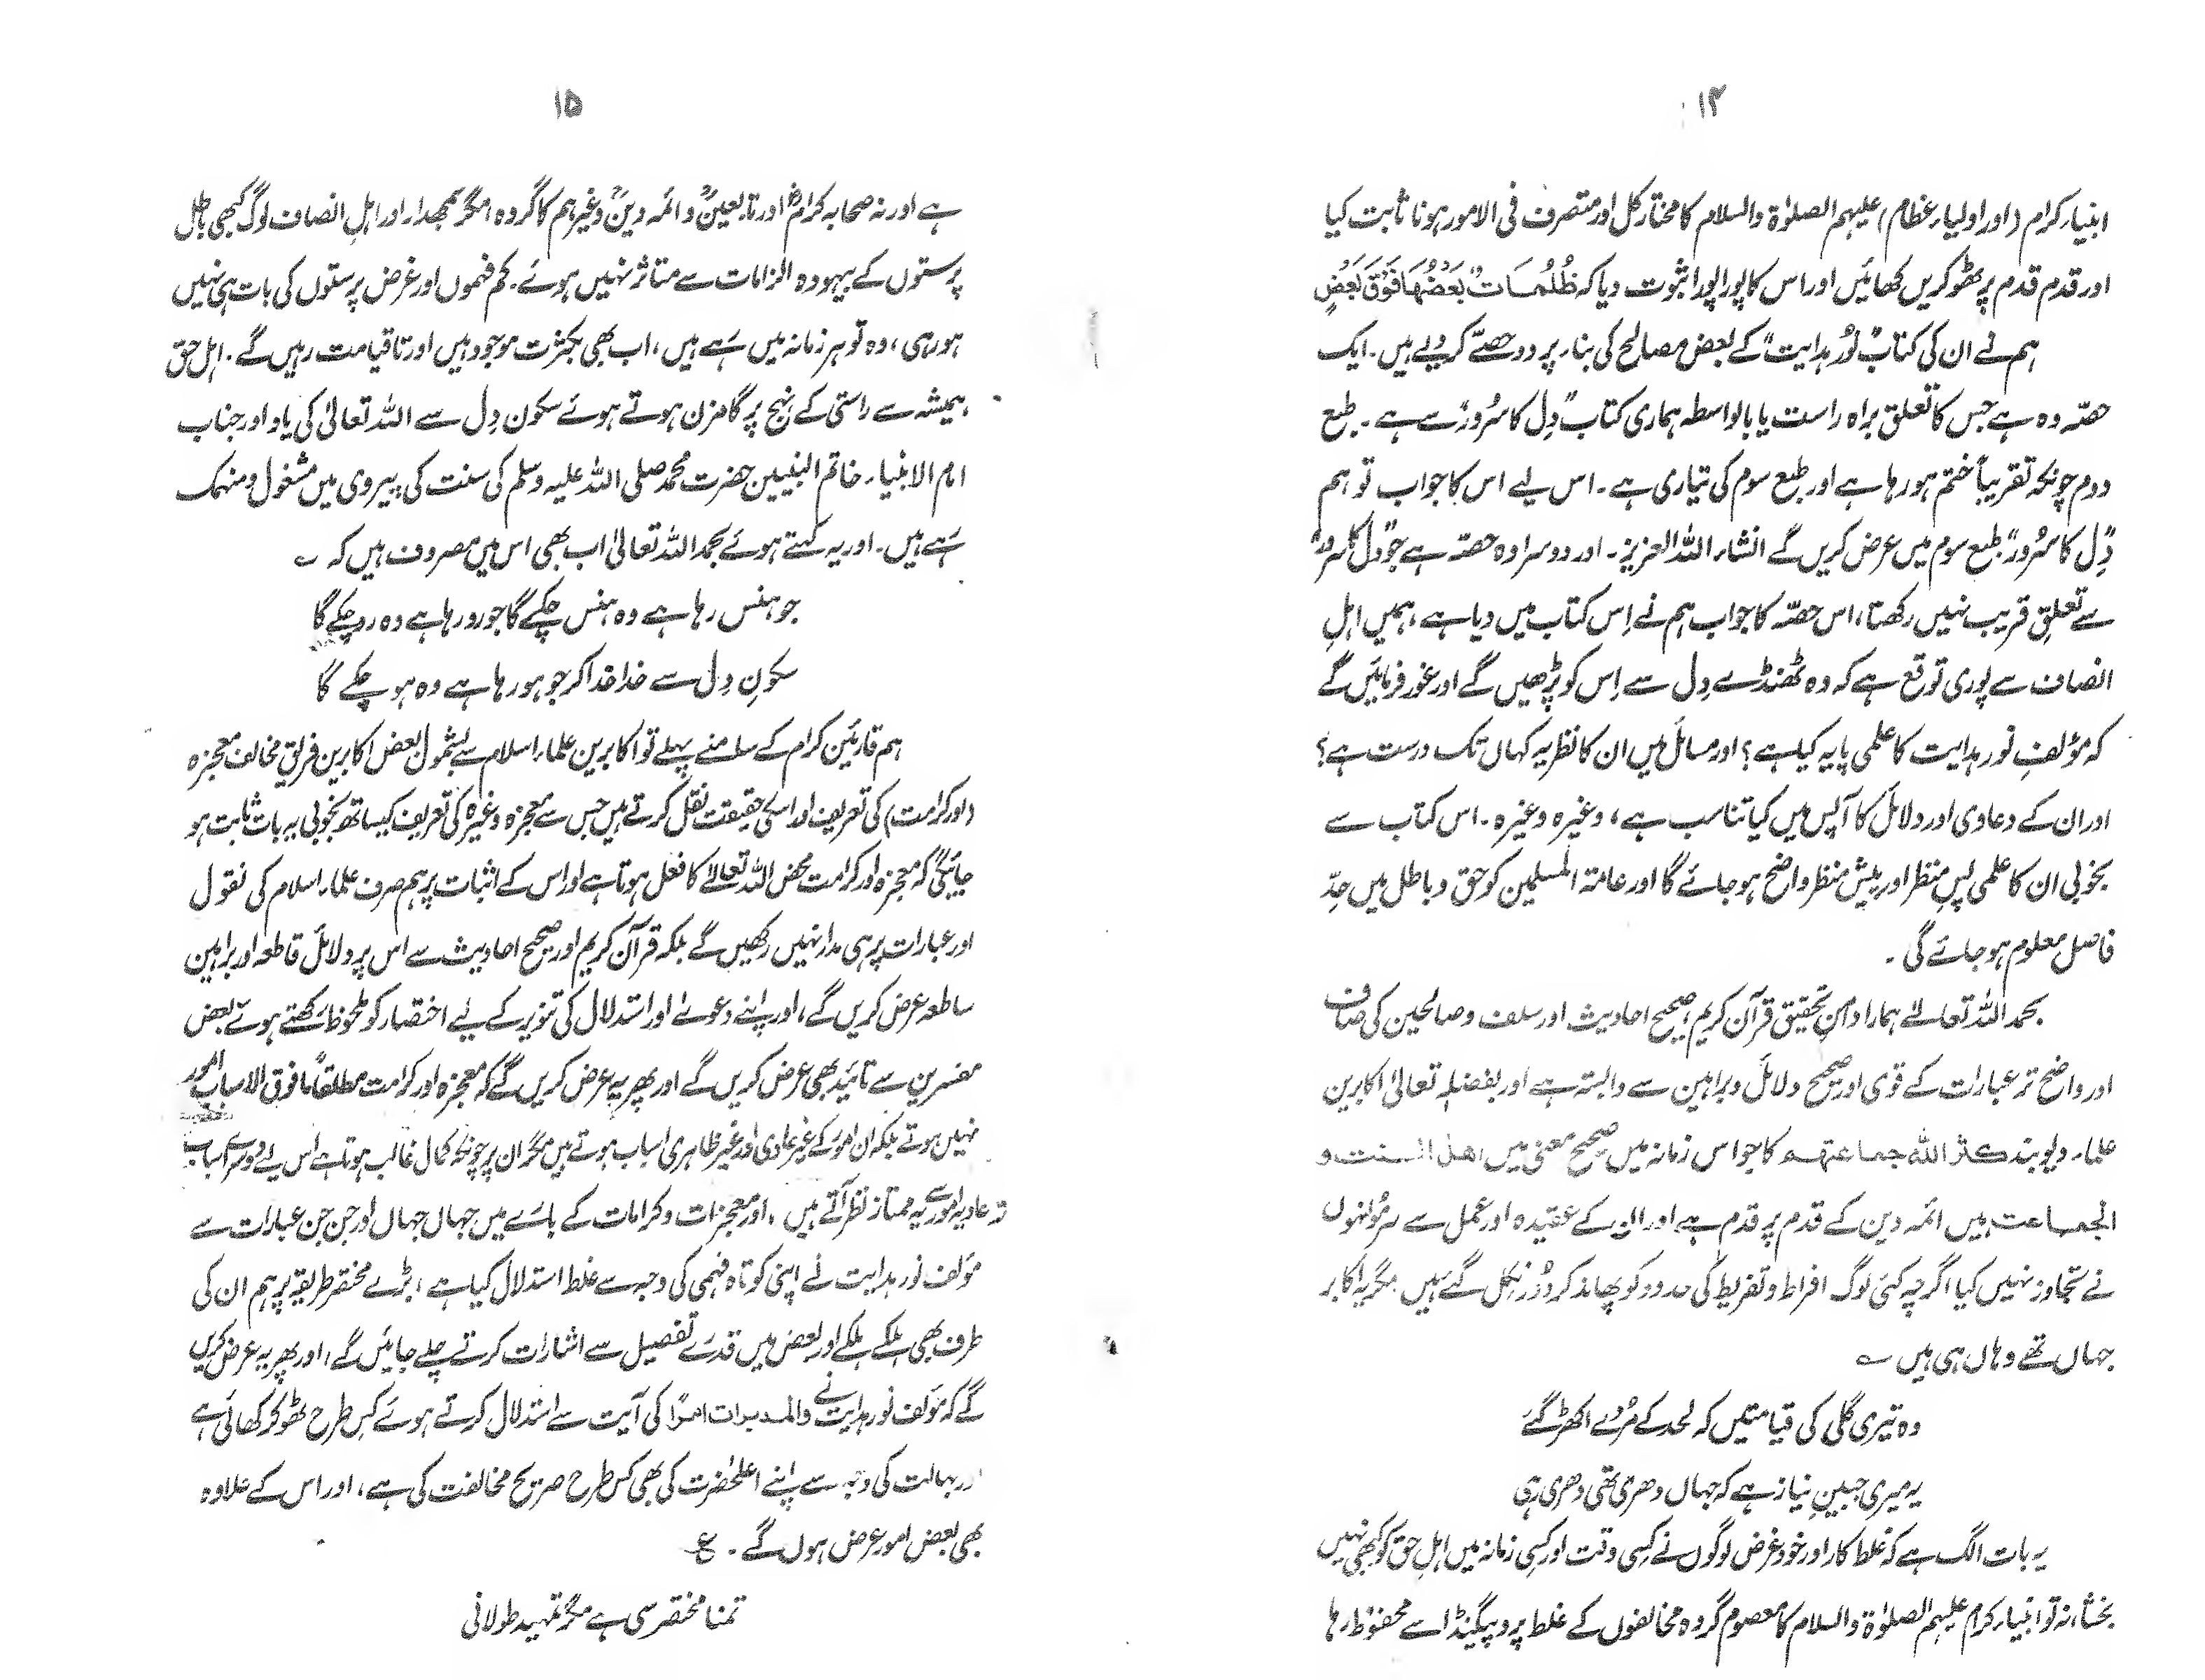 ۱۴
انبیاء کرام (اور اولیاء عظام) علیہم الصلوٰۃ والسلام کا مختار کل اور متصرف فی الامور ہونا ثابت کیا
اور قدم قدم پر ٹھوکریں کھائیں اور اس کا پورا پورا ثبوت دیا کہ ظُلُمَاتٌ بَعْضُهَا فَوْقَ بَعْضٍ
ہم نے ان کی کتاب "نُورِ ہدایت" کے بعض مصالح کی بناء پر دو حصّے کر دیے ہیں۔ ایک
حصّہ وہ ہے جس کا تعلق براہ راست یا بالواسطہ ہماری کتاب "دِل کا سُرور" سے ہے۔ طبع
دوم چونکہ تقریباً ختم ہو رہا ہے اور طبع سوم کی تیاری ہے۔ اس لیے اس کا جواب تو ہم
"دِل کا سُرور" طبع سوم میں عرض کریں گے انشاء اللہ العزیز۔ اور دوسرا وہ حصّہ ہے جو "دِل کا سُرور"
سے تعلقِ قریب نہیں رکھتا، اس حصّہ کا جواب ہم نے اِس کتاب میں دیا ہے، ہمیں اہلِ
انصاف سے پوری توقع ہے کہ وہ ٹھنڈے دِل سے اِس کو پڑھیں گے اور غور فرمائیں گے
کہ مؤلفِ نور ہدایت کا علمی پایہ کیا ہے؟ اور مسائل میں ان کا نظریہ کہاں تک درست ہے؟
اور ان کے دعاوی اور دلائل کا آپس میں کیا تناسب ہے، وغیرہ وغیرہ۔ اس کتاب سے
بخوبی ان کا علمی پسِ منظر اور پیش منظر واضح ہو جائے گا اور عامۃ المسلمین کو حق و باطل میں حدِّ
فاصل معلوم ہو جائے گی۔
بحمد اللہ تعالےٰ ہمارا دامنِ تحقیق قرآن کریم، صحیح احادیث اور سلف و صالحین کی صاف
اور واضح تر عبارات کے قوی اور صحیح دلائل و براہین سے وابستہ ہے اور بفضلہٖ تعالیٰ اکابرین
علماء دیوبند کثر اللہ جماعتہم کا جو اس زمانہ میں صحیح معنیٰ میں اهل السنت و
الجماعت ہیں ائمہ دین کے قدم پر قدم ہے اور ان کے عقیدہ اور عمل سے سرِمُو انہوں
نے تجاوز نہیں کیا اگرچہ کئی لوگ افراط و تفریط کی حدود کو پھاند کر دُور نِکل گئے ہیں۔ مگر یہ اکابر
جہاں تھے وہاں ہی ہیں ؎
وہ تیری گلی کی قیامتیں کہ لحد کے مُردے اکھڑ گئے
یہ میری جبینِ نیاز ہے کہ جہاں دھری تھی دھری رہی
یہ بات الگ ہے کہ غلط کار اور خود غرض لوگوں نے کسِی وقت اور کسِی زمانہ میں اہلِ حق کو کبھی نہیں
بخشا، نہ تو انبیاء کرام علیہم الصلوٰۃ والسلام کا معصوم گروہ مخالفوں کے غلط پروپیگنڈا سے محفوظ رہا
۱۵
ہے اور نہ صحابہ کرامؓ اور تابعینؒ و ائمہ دینؒ وغیرہم کا گروہ، مگر سمجھدار اور اہلِ انصاف لوگ کبھی باطل
پرستوں کے بیہودہ الزامات سے متاثر نہیں ہوئے۔ کم فہموں اور غرض پرستوں کی بات ہی نہیں
ہو رہی، وہ تو ہر زمانہ میں رہے ہیں، اب بھی بکثرت موجود ہیں اور تا قیامت رہیں گے۔ اہل حق
ہمیشہ سے راستی کے نہج پر گامزن ہوتے ہوئے سکون دِل سے اللہ تعالیٰ کی یاد اور جناب
امام الانبیاء خاتم النبیین حضرت محمد صلی اللہ علیہ وسلم کی سنت کی پیروی میں مشغول و منہمک
رہے ہیں۔ اور یہ کہتے ہوئے بحمد اللہ تعالیٰ اب بھی اس میں مصروف ہیں کہ ؎
جو ہنس رہا ہے وہ ہنس چکے گا جو رو رہا ہے وہ رو چکے گا
سکونِ دِل سے خدا خدا کر جو ہو رہا ہے وہ ہو چکے گا
ہم قارئین کرام کے سامنے پہلے تو اکابرین علماء اسلام سے بشمول بعض اکابرین فریقِ مخالف معجزہ
(اور کرامت) کی تعریف اور اسکی حقیقت نقل کرتے ہیں جس سے معجزہ وغیرہ کی تعریف کیساتھ بخوبی یہ بات ثابت ہو
جائیگی کہ معجزہ اور کرامت محض اللہ تعالےٰ کا فعل ہوتا ہے اور اس کے اثبات پر ہم صرف علماء اسلام کی نقول
اور عبارات پر ہی مدار نہیں رکھیں گے بلکہ قرآن کریم اور صحیح احادیث سے اس پر دلائل قاطعہ اور براہین
ساطعہ عرض کریں گے، اور اپنے دعوےٰ اور استدلال کی تنویر کے لیے اختصار کو ملحوظ رکھتے ہوئے بعض
مفسرین سے تائید بھی عرض کریں گے اور پھر یہ عرض کریں گے کہ معجزہ اور کرامت مطلقاً مافوق الاسباب امور
نہیں ہوتے بلکہ ان امور کے غیر عادی اور غیر ظاہری اسباب ہوتے ہیں مگر ان پر چونکہ کمال غالب ہوتا ہے اس لیے دوسرے اسباب
عادیہ امور سے یہ ممتاز نظر آتے ہیں، اور معجزات و کرامات کے بارے میں جہاں جہاں اور جن جن عبارات سے
مؤلف نور ہدایت نے اپنی کوتاہ فہمی کی وجہ سے غلط استدلال کیا ہے، بڑے مختصر طریقہ پر ہم ان کی
طرف بھی ہلکے ہلکے اور بعض میں قدرے تفصیل سے اشارات کرتے چلے جائیں گے، اور پھر یہ عرض کریں
گے کہ مؤلف نور ہدایت نے والمدبرات امرًا کی آیت سے استدلال کرتے ہوئے کس طرح ٹھوکر کھائی ہے
اور جہالت کی وجہ سے اپنے اعلحٰضرت کی بھی کس طرح صریح مخالفت کی ہے، اور اس کے علاوہ
بھی بعض امور عرض ہوں گے۔ ع
تمنا مختصر سی ہے مگر تمہید طولانی